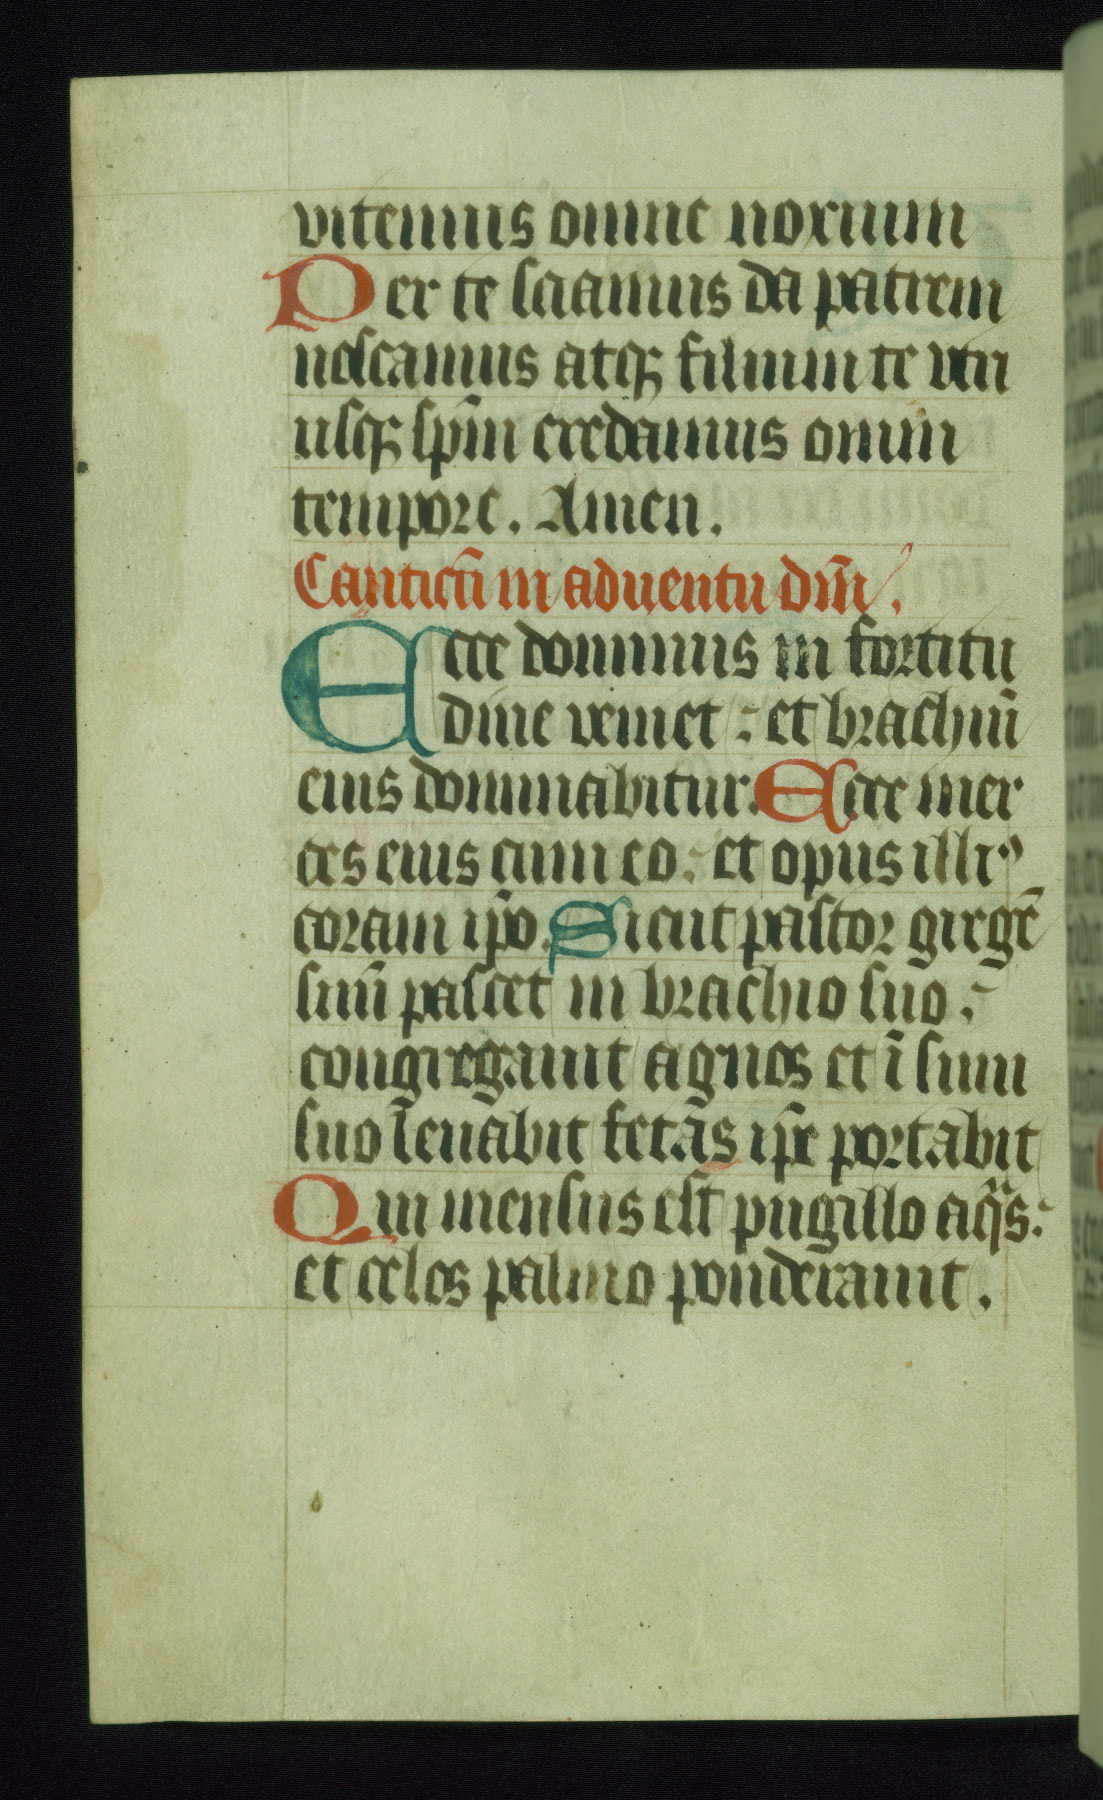 vitemus omne noxium
Per te sciamus da patrem
noscamus atqꝫ filium te utri
usqꝫ sp̄m credamus omni
tempore. Amen.
Canticū in aduentu dn̄i.
Ecce dominus in fortitu
dine veniet : et brachiū
eius dominabitur. Ecce mer
ces eius cum eo : et opus illiꝰ
coram ip̄o. Sicut pastor gregē
suū pascet in brachio suo :
congregauit agnos et ī sinu
suo leuabit fetas ip̄e portabit
Qui mensus est pugillo aq̄s :
et celos palmo ponderauit.